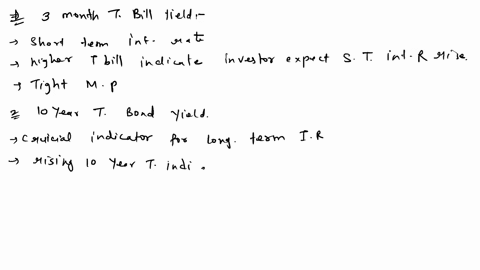 1) 3 month T. Bill Yield:-
→ Short term int. rate
→ higher T bill indicate investor expect S. T. int. R rise.
→ Tight M. P
2 10 Year T. Bond Yield.
→ Crulcial indicator for long. term I. R
→ rising 10 Year T. indi